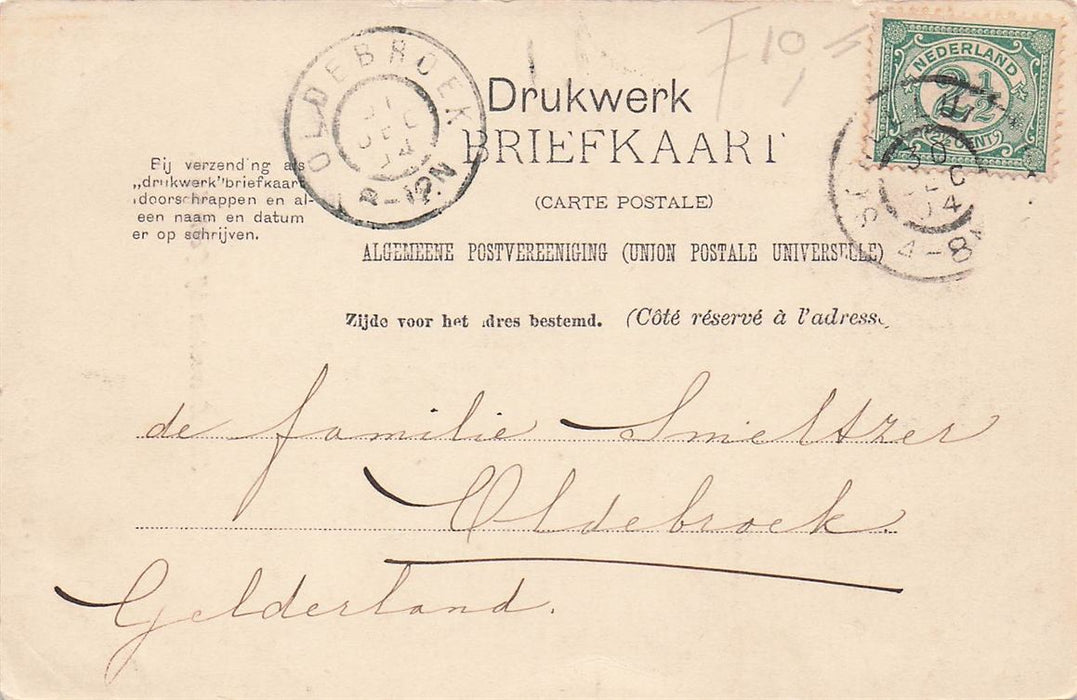 F 10,=
NEDERLAND
2½
2½ CENT
OLDEBROEK
31 DEC 04
8-12N
30 DEC 04
4-8N
Drukwerk
BRIEFKAART
(CARTE POSTALE)
Bij verzending als
„drukwerk" briefkaart
doorschrappen en al-
een naam en datum
er op schrijven.
ALGEMEENE POSTVEREENIGING (UNION POSTALE UNIVERSELLE)
Zijde voor het adres bestemd. (Côté réservé à l'adresse
de familie Smeltzer
Oldebroek.
Gelderland.